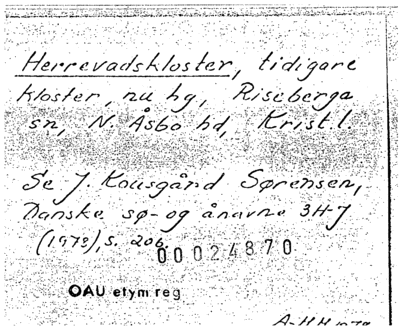 Herrevadskloster, tidigare
kloster, nu hg, Riseberga
sn, N. Åsbo hd, Krist. l.
Se J. Kousgård Sørensen,
Danske sø- og ånavne 3H-J
(1978), s. 206.
00024870
OAU etym reg